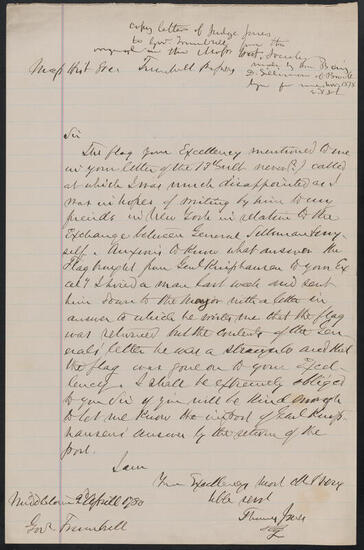 copy letter of Judge Jones
to Govr Trumbull from the
original in the Mass Hist. Society
made by
Dr. Silliman of Brook
lyn for me Nov. 1878
Mass Hist Soc. Trumbull Papers
Sir
The flag your Excellency mentioned to me
in your letter of the 13th ult never (?) called
at which I was much disappointed as I
was in hopes of writing by him to my
friends in New York in relation to the
Exchange between General Silliman & my-
self. Anxious to know what answer the
Flag brought from Genl Kniphausen to your Ex
cely I hired a man last week and sent
him down to the Mayor with a letter in
answer to which he writes me that the flag
was returned but the contents of the Gen
erals' letter he was a stranger to and that
the flag was gone on to your Excel-
lency. I shall be extremely obliged
to you Sir if you will be kind enough
to let me know the import of Genl Knip
hausens answer by the return of the
post.
I am
Your Excellencys most obt & very
hble servt
Thomas Jones
Middletown 2d April 1780
Govr Trumbull